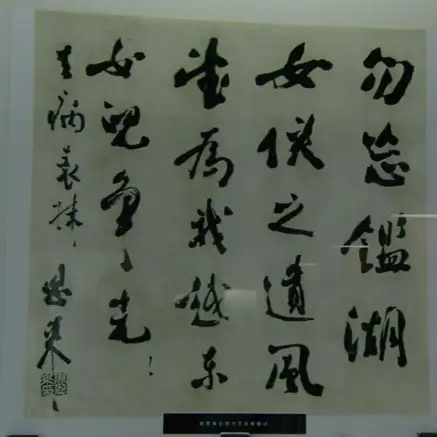 勿忘鑑湖
女俠之遺風
望為我越东
女兒争光！
去病表妹，恩来